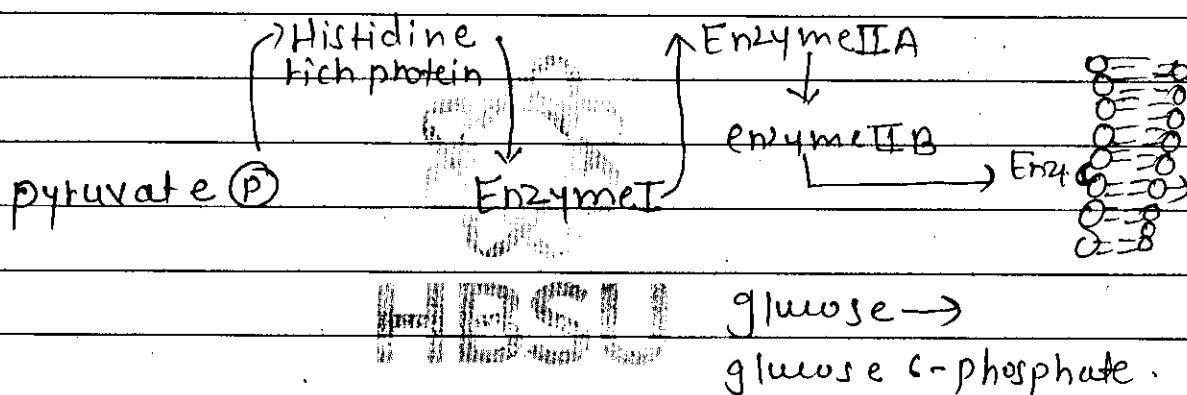 Histidine
rich protein
Enzyme IIA
enzyme IIB
Enz.
pyruvate P
Enzyme I
HBSU
glucose →
glucose 6-phosphate.